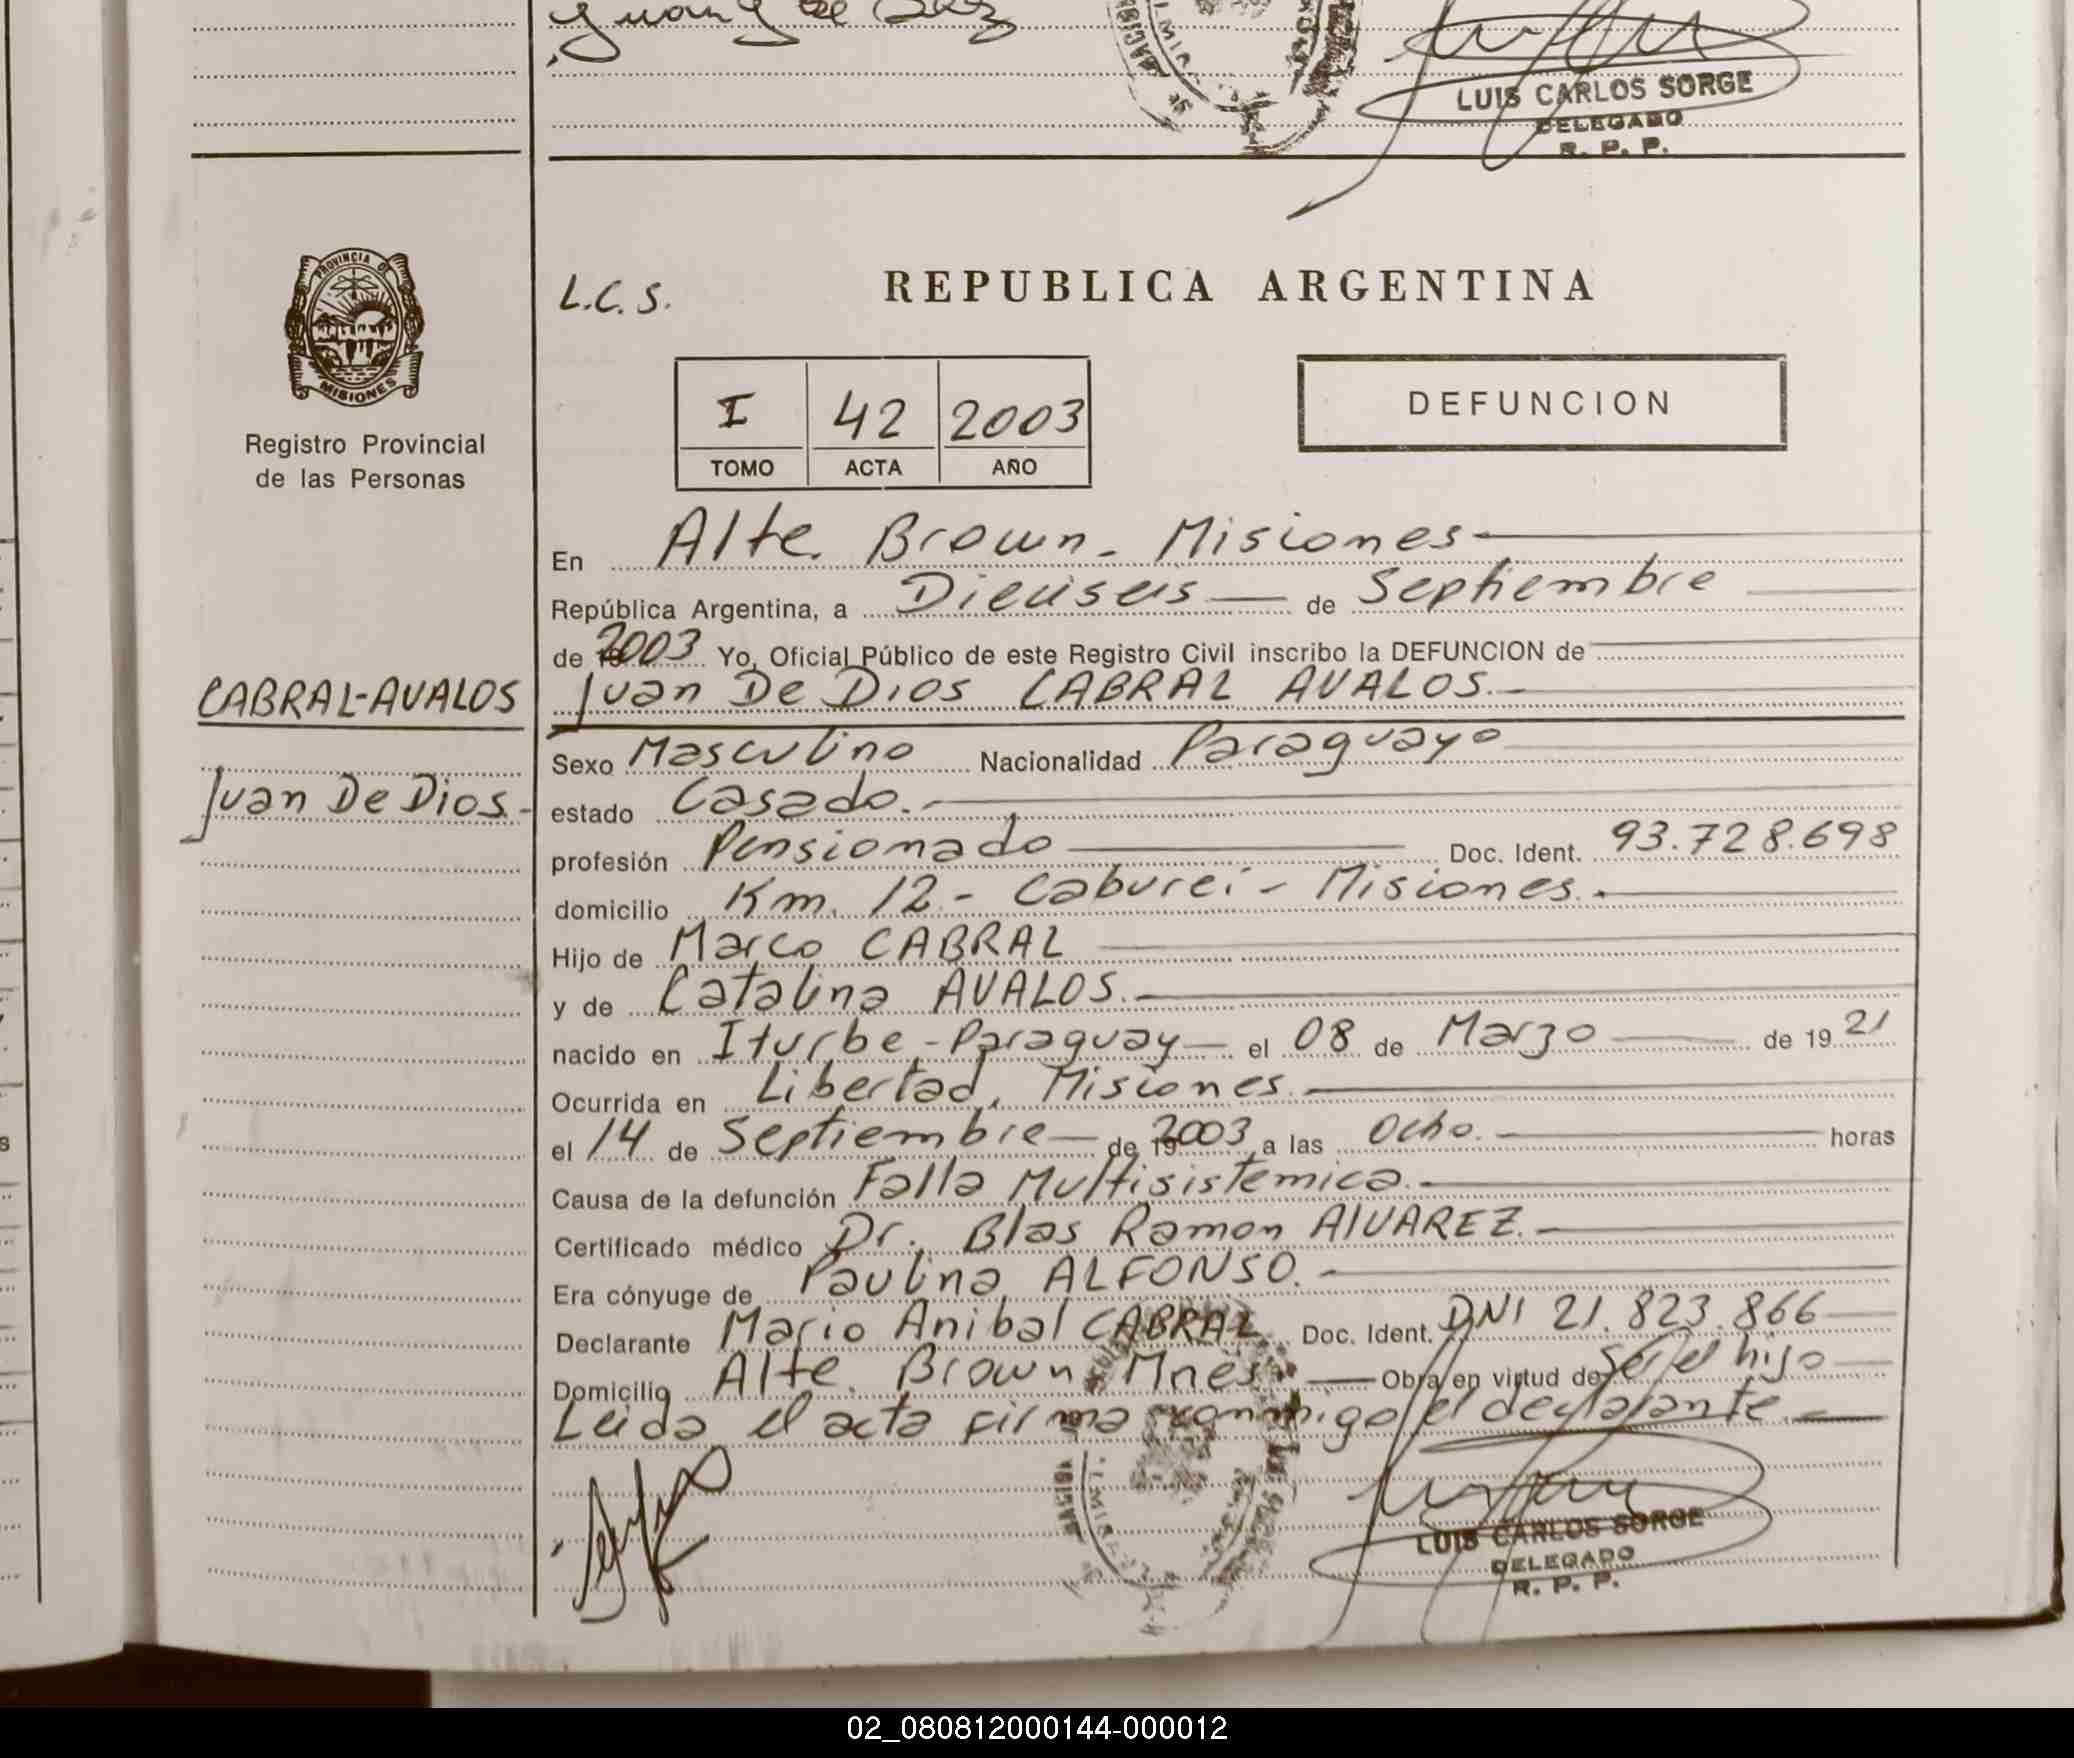 LUIS CARLOS SORGE
DELEGADO
R. P. P.
PROVINCIA DE
MISIONES
Registro Provincial
de las Personas
CABRAL-AVALOS
Juan De Dios.-
L.C.S.
REPUBLICA ARGENTINA
I 42 2003
TOMO ACTA AÑO
DEFUNCION
En Alte. Brown - Misiones
República Argentina, a Dieciseis de Septiembre
de 2003 Yo, Oficial Público de este Registro Civil inscribo la DEFUNCION de
Juan De Dios CABRAL AVALOS.-
Sexo Masculino Nacionalidad Paraguayo
estado Casado.-
profesión Pensionado Doc. Ident. 93.728.698
domicilio Km. 12 - Caburei - Misiones.-
Hijo de Marco CABRAL
y de Catalina AVALOS.-
nacido en Iturbe - Paraguay el 08 de Marzo de 1921
Ocurrida en Libertad, Misiones.-
el 14 de Septiembre de 2003 a las Ocho.- horas
Causa de la defunción Falla Multisistemica.-
Certificado médico Dr. Blas Ramon ALVAREZ.-
Era cónyuge de Paulina ALFONSO.-
Declarante Mario Anibal CABRAL Doc. Ident. DNI 21.823.866
Domicilio Alte. Brown Mnes. Obra en virtud de Ser el hijo
Leida el acta firma conmigo el declarante.-
LUIS CARLOS SORGE
DELEGADO
R. P. P.
02_080812000144-000012